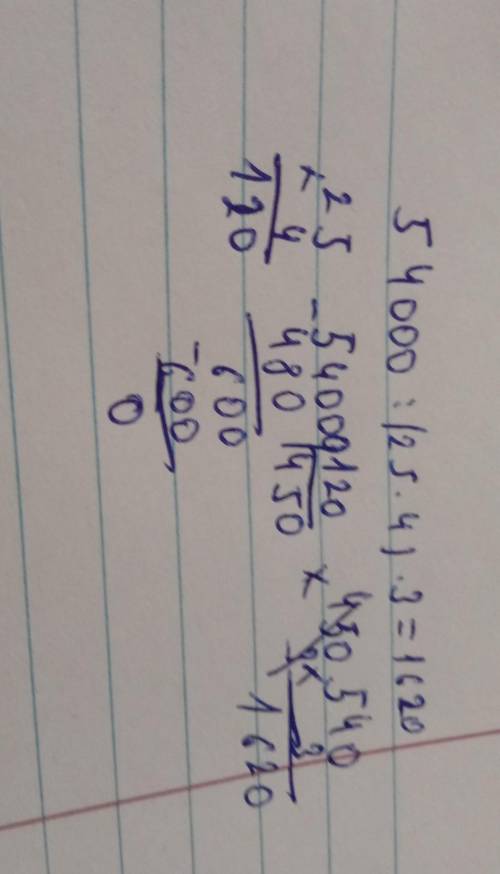 54000 : (25 · 4) · 3 = 1620
× 25
4
120
- 54000 120
480 450
600
- 600
0
× 450
× 540
3
1620